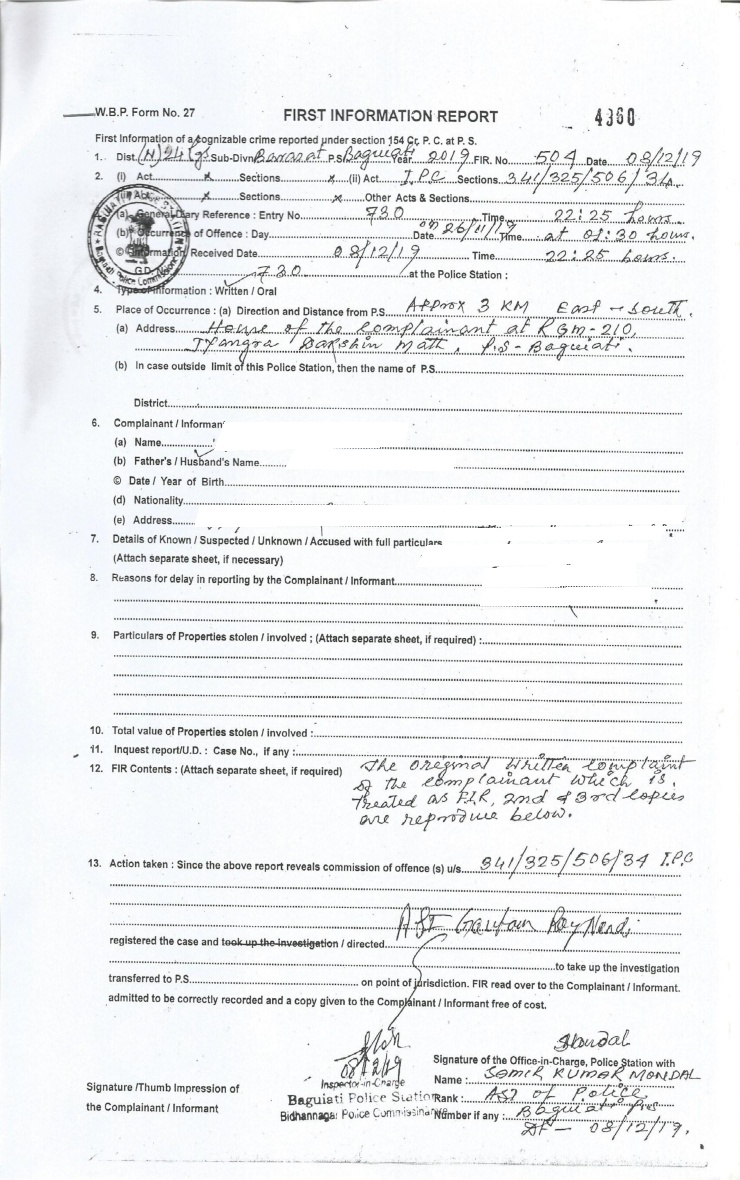 W.B.P. Form No. 27
FIRST INFORMATION REPORT
4360
First Information of a cognizable crime reported under section 154 Cr. P. C. at P. S.
1. Dist. (N) 24 Pgs Sub-Divn Barasat P.S. Baguiati Year 2019 FIR. No. 504 Date 08/12/19
2. (i) Act x Sections x (ii) Act I.P.C Sections 341/325/506/34
Act x Sections x Other Acts & Sections
(a) General Diary Reference : Entry No. 730 Time 22:25 hours
(b) Occurrence of Offence : Day Date 26/11/19 Time at 01:30 hours.
© Information Received Date 08/12/19 Time 22:25 hours.
G.D. 730 at the Police Station :
4. Type of Information : Written / Oral
5. Place of Occurrence : (a) Direction and Distance from P.S. Approx 3 KM East - South.
(a) Address House of the complainant at RGM-210,
Jyangra Dakshin Math. P.S - Baguiati.
(b) In case outside limit of this Police Station, then the name of P.S.
District
6. Complainant / Informan
(a) Name
(b) Father's / Husband's Name
© Date / Year of Birth
(d) Nationality
(e) Address
7. Details of Known / Suspected / Unknown / Accused with full particulars
(Attach separate sheet, if necessary)
8. Reasons for delay in reporting by the Complainant / Informant
9. Particulars of Properties stolen / involved ; (Attach separate sheet, if required) :
10. Total value of Properties stolen / involved :
11. Inquest report/U.D. : Case No., if any :
12. FIR Contents : (Attach separate sheet, if required) The original written complaint
of the complainant which is
treated as FIR, 2nd & 3rd copies
are reproduce below.
13. Action taken : Since the above report reveals commission of offence (s) u/s. 341/325/506/34 I.P.C
ASI Gautam Roy Nandi
registered the case and took up the investigation / directed
to take up the investigation
transferred to P.S. on point of jurisdiction. FIR read over to the Complainant / Informant.
admitted to be correctly recorded and a copy given to the Complainant / Informant free of cost.
SMondal
08/12/19
Signature of the Office-in-Charge, Police Station with
Inspector-in-Charge
Name : SAMIR KUMAR MONDAL
Signature /Thumb Impression of
Baguiati Police Station
Rank : ASI of Police
the Complainant / Informant
Bidhannagar Police Commissionerate
Number if any : Baguiati PS
Dt - 08/12/19.